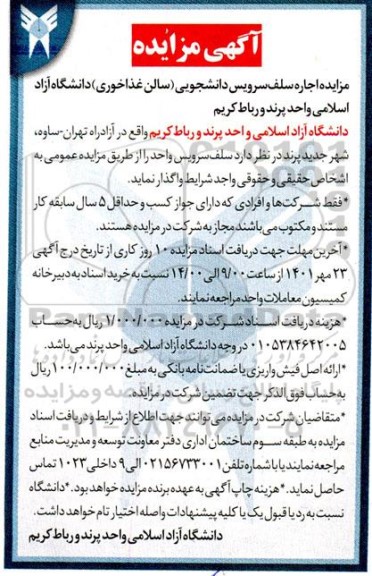 آگهی مزایده
مزایده اجاره سلف سرویس دانشجویی (سالن غذاخوری) دانشگاه آزاد
اسلامی واحد پرند و رباط کریم
دانشگاه آزاد اسلامی واحد پرند و رباط کریم واقع در آزادراه تهران-ساوه،
شهر جدید پرند در نظر دارد سلف سرویس واحد را از طریق مزایده عمومی به
اشخاص حقیقی و حقوقی واجد شرایط واگذار نماید.
*فقط شرکت‌ها و افرادی که دارای جواز کسب و حداقل ۵ سال سابقه کار
مستند و مکتوب می‌باشند مجاز به شرکت در مزایده هستند.
*آخرین مهلت جهت دریافت اسناد مزایده ۱۰ روز کاری از تاریخ درج آگهی
۲۳ مهر ۱۴۰۱ از ساعت ۹/۰۰ الی ۱۴/۰۰ نسبت به خرید اسناد به دبیرخانه
کمیسیون معاملات واحد مراجعه نمایند.
*هزینه دریافت اسناد شرکت در مزایده ۱/۰۰۰/۰۰۰ ریال به حساب
۰۱۰۵۳۸۴۶۴۲۰۰۵ در وجه دانشگاه آزاد اسلامی واحد پرند می‌باشد.
*ارائه اصل فیش واریزی یا ضمانت‌نامه بانکی به مبلغ ۱۰۰/۰۰۰/۰۰۰ ریال
به حساب فوق الذکر جهت تضمین شرکت در مزایده.
*متقاضیان شرکت در مزایده می توانند جهت اطلاع از شرایط و دریافت اسناد
مزایده به طبقه سوم ساختمان اداری دفتر معاونت توسعه و مدیریت منابع
مراجعه نمایند یا با شماره تلفن ۰۲۱۵۶۷۳۳۰۰۱ الی ۹ داخلی ۱۰۲۳ تماس
حاصل نماید. *هزینه چاپ آگهی به عهده برنده مزایده خواهد بود. *دانشگاه
نسبت به رد یا قبول یک یا کلیه پیشنهادات واصله اختیار تام خواهد داشت.
دانشگاه آزاد اسلامی واحد پرند و رباط کریم